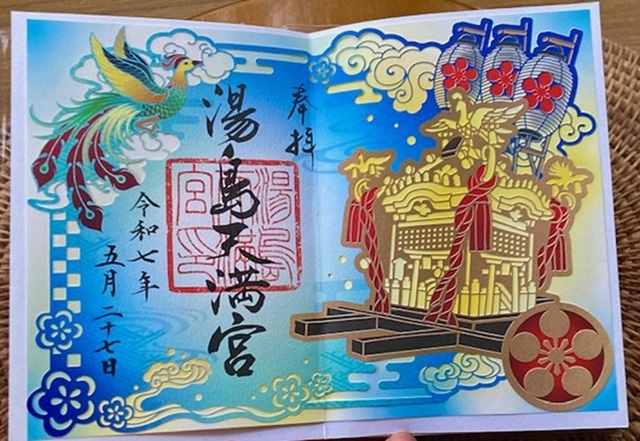 奉拝
湯島天満宮
令和七年
五月二十七日